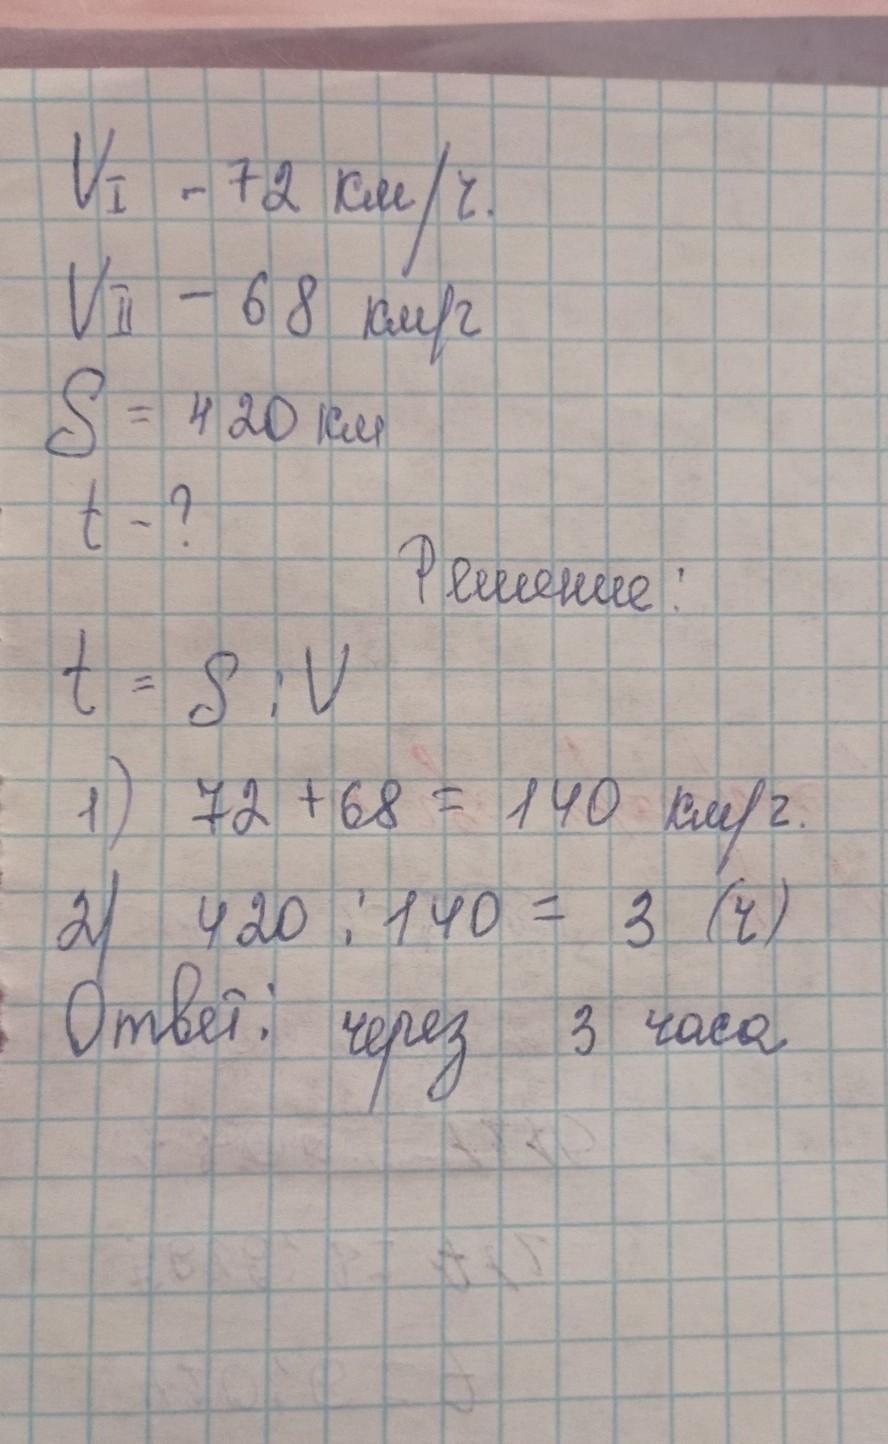 VI - 72 км/ч.
VII - 68 км/ч
S = 420 км
t - ?
Решение:
t = S : V
1) 72 + 68 = 140 км/ч.
2) 420 : 140 = 3 (ч)
Ответ: через 3 часа